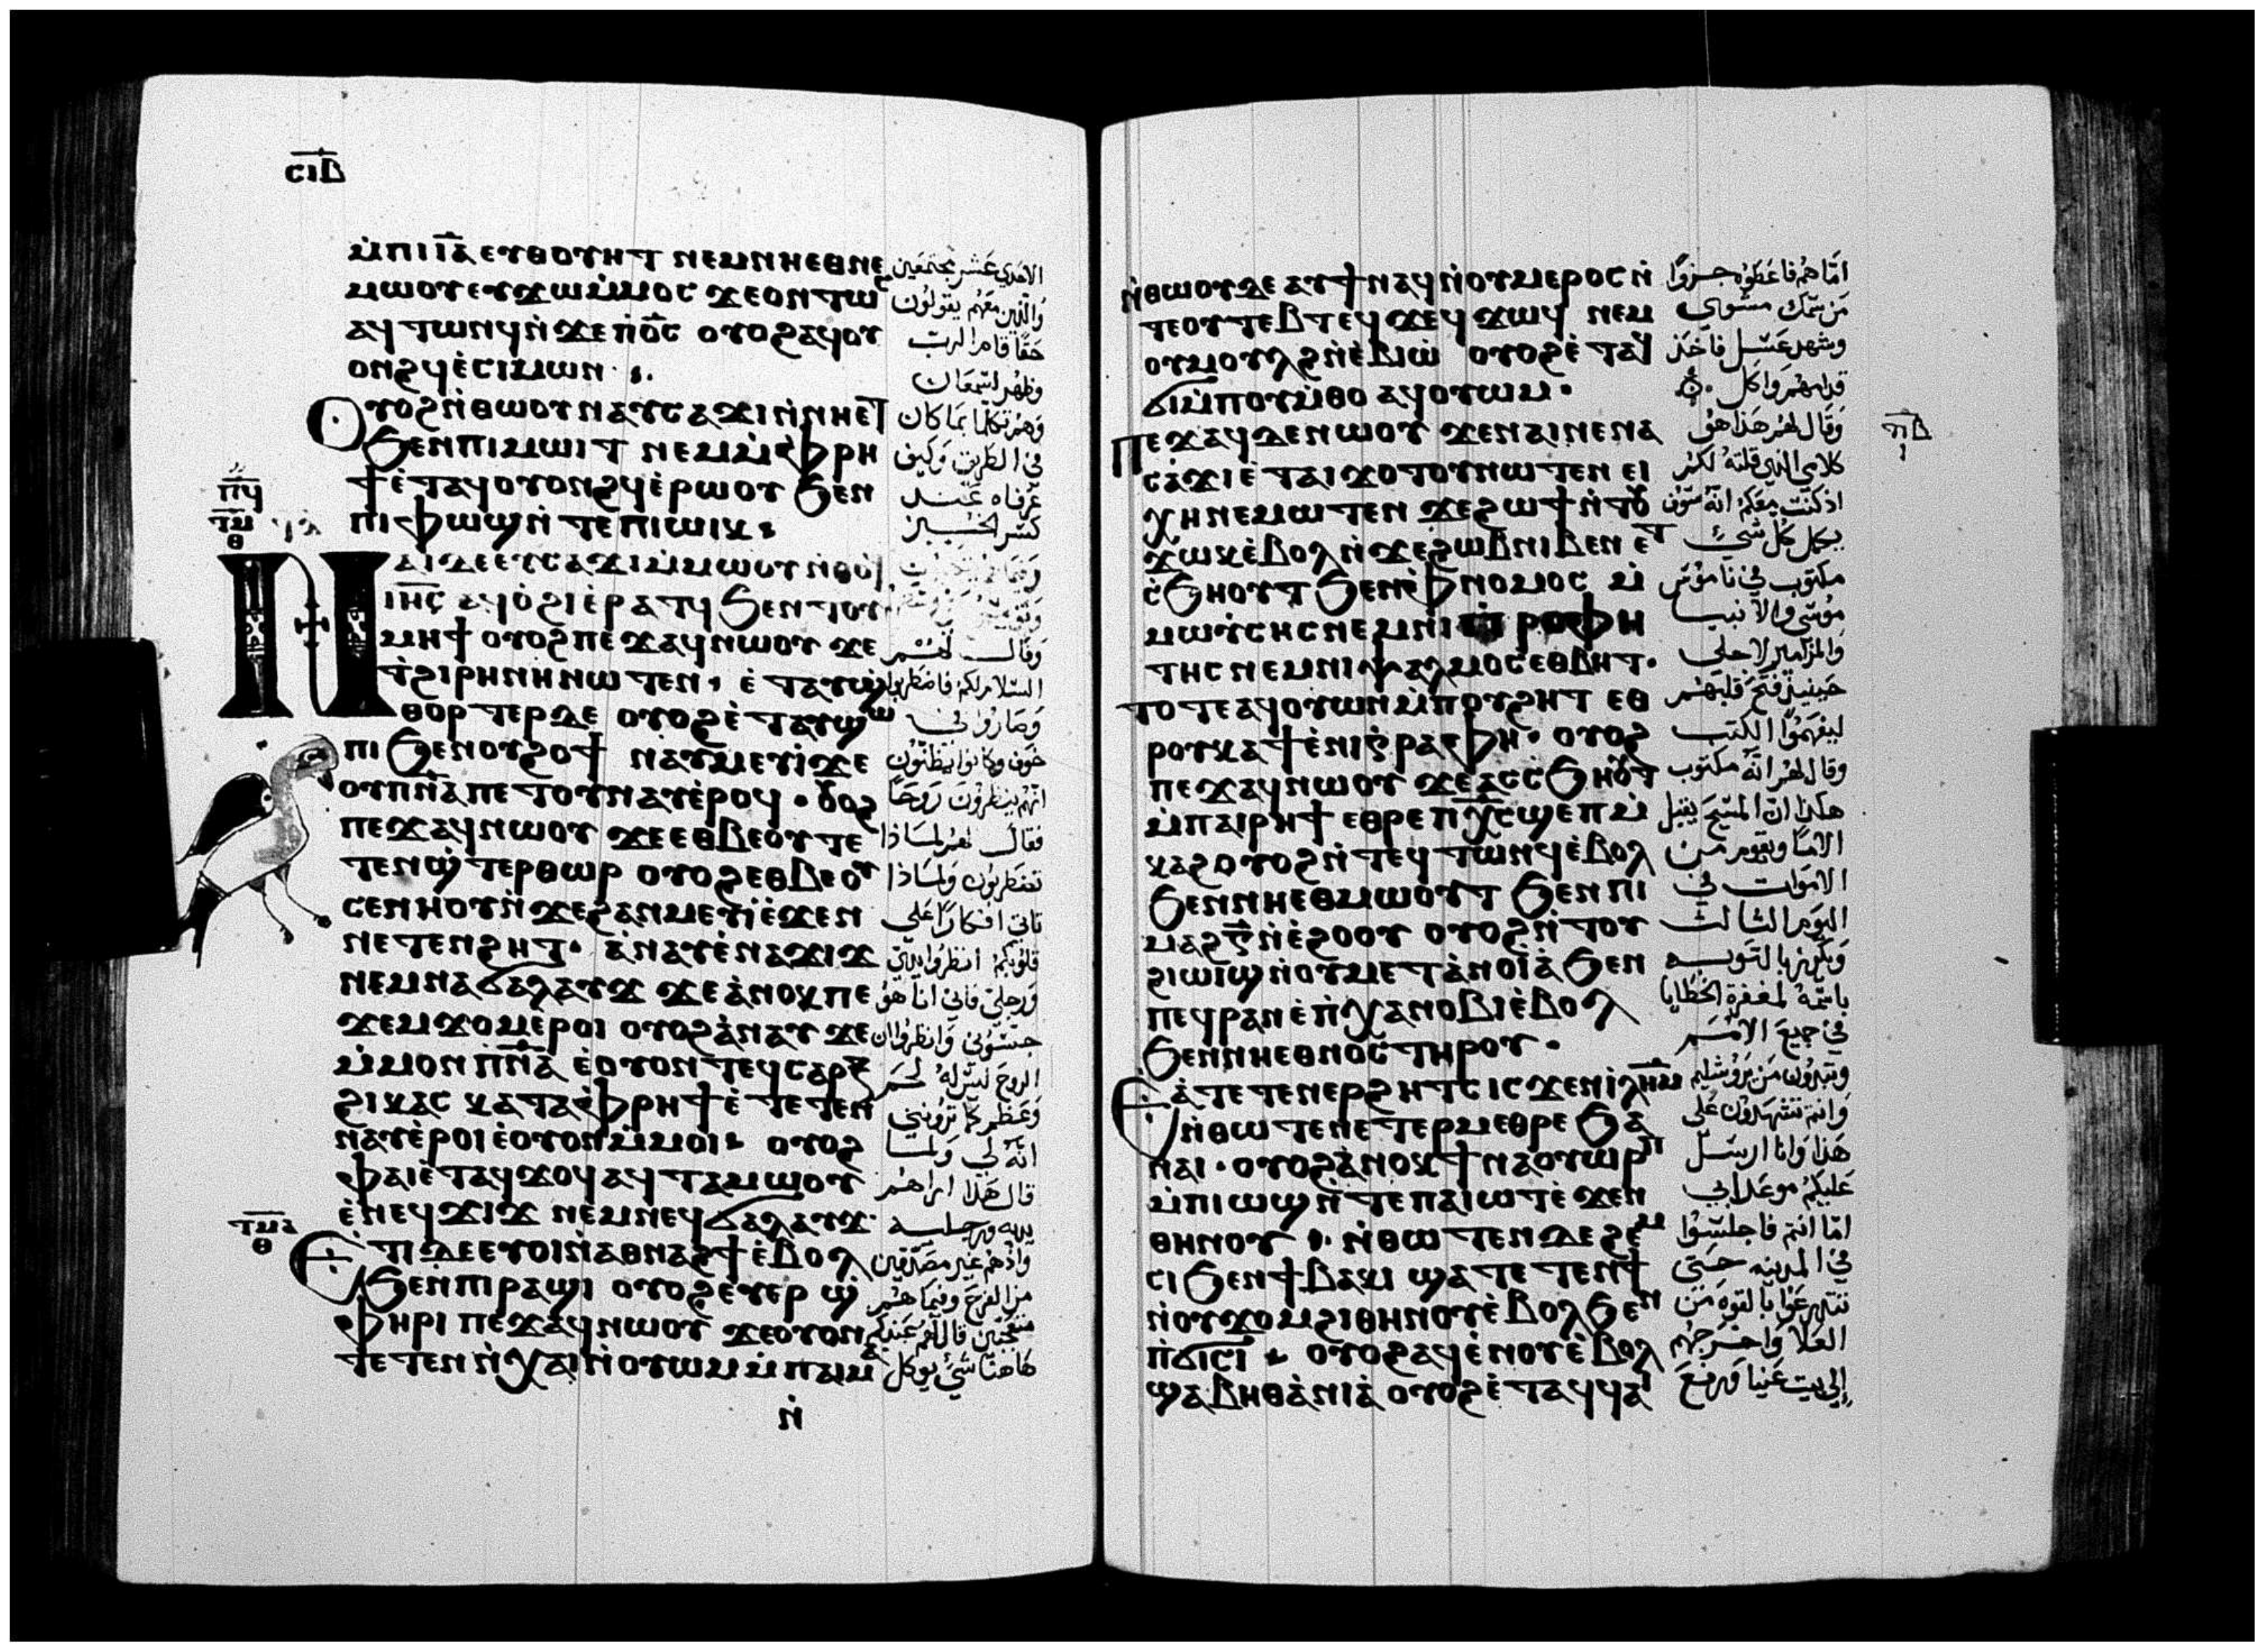 ⲥⲓⲃ
ⲙ̇ⲡⲓⲓ̅ⲁ̅ ⲉⲩⲑⲟⲩⲏⲧ ⲛⲉⲙⲛⲏⲉⲑⲛⲉ
ⲙⲱⲟⲩ ⲉⲩϫⲱⲙ̇ⲙⲟⲥ ϫⲉⲟⲛⲧⲱ
ⲁϥⲧⲱⲛϥⲛ̇ϫⲉⲡ̇ⲟ̅ⲥ̅ ⲟⲩⲟϩⲁϥⲟⲩ
ⲟⲛϩϥⲉ̇ⲥⲓⲙⲱⲛ
ⲟⲩⲟϩⲛ̇ⲑⲱⲟⲩ ⲛⲁⲩⲥⲁϫⲓⲛ̇ⲛⲏⲉⲧ
ϧⲉⲛⲡⲓⲙⲱⲓⲧ ⲛⲉⲙⲙ̇ⲫⲣⲏ
ϯⲉ̇ⲧⲁϥⲟⲩⲟⲛϩϥⲉ̇ⲣⲱⲟⲩ ϧⲉⲛ
ⲡⲓⲫⲱϣⲛ̇ⲧⲉⲡⲓⲱⲓⲕ
ⲡϥ
ⲧⲙ
ⲑ
ⲛⲁⲓⲇⲉⲉⲩⲥⲁϫⲓⲙ̇ⲙⲱⲟⲩ ⲛ̇ⲑⲟϥ
ⲓⲏ̅ⲥ̅ ⲁϥⲟ̇ϩⲓⲉ̇ⲣⲁⲧϥ ϧⲉⲛⲧⲟⲩ
ⲙⲏϯ ⲟⲩⲟϩⲡⲉϫⲁϥⲛⲱⲟⲩ ϫⲉ
ⲧ̇ϩⲓⲣⲏⲛⲏⲛⲱⲧⲉⲛ ⲉ̇ⲧⲁⲩϣ̇
ⲑⲟⲣⲧⲉⲣⲇⲉ ⲟⲩⲟϩⲉ̇ⲧⲁⲩϣⲱ
ⲡⲓ ϧⲉⲛⲟⲩϩⲟϯ ⲛⲁⲩⲙⲉⲩⲓ̇ϫⲉ
ⲟⲩⲡⲛ̅ⲁ̅ⲡⲉⲧⲟⲩⲛⲁⲩⲉ̇ⲣⲟϥ ⲟⲩⲟϩ
ⲡⲉϫⲁϥⲛⲱⲟⲩ ϫⲉⲉⲑⲃⲉⲟⲩⲧⲉ
ⲧⲉⲛϣ̇ⲧⲉⲣⲑⲱⲣ ⲟⲩⲟϩⲉⲑⲃⲉⲟⲩ
ⲥⲉⲛⲏⲟⲩⲛ̇ϫⲉϩⲁⲛⲙⲉⲩⲓ̇ⲉ̇ϫⲉⲛ
ⲛⲉⲧⲉⲛϩⲏⲧ ⲁ̇ⲛⲁⲩⲉ̇ⲛⲁϫⲓϫ
ⲛⲉⲙⲛⲁϭⲁⲗⲁⲩϫ ϫⲉⲁ̇ⲛⲟⲕⲡⲉ
ϫⲉⲙϫⲟⲙⲉ̇ⲣⲟⲓ ⲟⲩⲟϩⲁ̇ⲛⲁⲩ ϫⲉ
ⲙ̇ⲙⲟⲛ ⲡ̇ⲛ̅ⲁ̅ ⲉ̇ⲟⲩⲟⲛⲧⲉϥⲥⲁⲣⲝ
ϩⲓⲕⲁⲥ ⲕⲁⲧⲁⲫⲣⲏϯⲉ̇ⲧⲉⲧⲉⲛ
ⲛⲁⲩⲉ̇ⲣⲟⲓ ⲉ̇ⲟⲩⲟⲛⲙ̇ⲙⲟⲓ ⲟⲩⲟϩ
ⲫⲁⲓⲉ̇ⲧⲁϥϫⲟϥ ⲁϥⲧⲁⲙⲱⲟⲩ
ⲉ̇ⲛⲉϥϫⲓϫ ⲛⲉⲙⲛⲉϥϭⲁⲗⲁⲩϫ
ⲧⲙⲁ
ⲑ
ⲉ̇ⲧⲓⲇⲉⲉⲩⲟⲓⲛ̇ⲁⲑⲛⲁϩϯⲉ̇ⲃⲟⲗ
ϧⲉⲛⲡⲓⲣⲁϣⲓ ⲟⲩⲟϩⲉⲩⲉⲣϣ̇
ⲫⲏⲣⲓ ⲡⲉϫⲁϥⲛⲱⲟⲩ ϫⲉⲟⲩⲟⲛ
ⲧⲉⲧⲉⲛ ⲛ̇ⲭⲁⲓⲛ̇ⲟⲩⲱⲙ ⲙ̇ⲡⲁⲓⲙⲁ
ⲛ̇
الاحدي عشر مجتمعين
والذين معهم يقولون
حقا قام الرب
وظهر لسمعان
وهم تكلما بما كان
في الطريق وكيف
عرفاه عند
كسر الخبز
وقال لهم
السلام لكم فاضطربوا
وصاروا في
خوف وكانوا يظنون
انهم ينظرون روحا
فقال لهم لماذا
تضطربون ولماذا
تاتي افكارا على
قلوبكم انظروا يدي
ورجلي فاني انا هو
جسوني وانظروا ان
الروح ليس له لحم
وعظم كما تروني
انه لي ولما
قال هذا اراهم
يديه ورجليه
واذ هم غير مصدقين
من الفرح وفيما هم
متعجبين قال لهم عندكم
هاهنا شي يوكل
ⲛ̇ⲑⲱⲟⲩⲇⲉ ⲁⲩϯⲛⲁϥⲛ̇ⲟⲩⲙⲉⲣⲟⲥⲛ̇
ⲧⲉⲟⲩⲧⲉⲃⲧⲉϥϫⲉϥϫⲱϥ ⲛⲉⲙ
ⲟⲩⲙⲟⲩⲗϩⲛ̇ⲉ̇ⲃⲓⲱ̇ ⲟⲩⲟϩⲉ̇ⲧⲁϥ
ϭⲓⲙ̇ⲡⲟⲩⲙ̇ⲑⲟ ⲁϥⲟⲩⲱⲙ
ⲡⲉϫⲁϥⲇⲉⲛⲱⲟⲩ ϫⲉⲛⲁⲓⲛⲉⲛⲁ
ⲥⲁ̇ϫⲓⲉ̇ⲧⲁⲓϫⲟⲧⲟⲩⲛⲱⲧⲉⲛ ⲉⲓ
ⲭⲏⲛⲉⲙⲱⲧⲉⲛ ϫⲉϩⲱϯⲛ̇ⲧⲟⲩ
ϫⲱⲕⲉ̇ⲃⲟⲗⲛ̇ϫⲉϩⲱⲃⲛⲓⲃⲉⲛ ⲉⲧ
ⲥ̇ϧⲏⲟⲩⲧ ϧⲉⲛⲫⲛⲟⲙⲟⲥ ⲙ̇
ⲙⲱⲩ̇ⲥⲏⲥⲛⲉⲙⲛⲓⲡ̇ⲣⲟⲫⲏ
ⲧⲏⲥ ⲛⲉⲙⲛⲓⲯⲁⲗⲙⲟⲥⲉⲑⲃⲏⲧ
ⲧⲟⲧⲉⲁϥⲟⲩⲱⲛⲙ̇ⲡⲟⲩϩⲏⲧ ⲉⲑ
ⲣⲟⲩⲕⲁϯⲉ̇ⲛⲓⲅ̇ⲣⲁⲫⲏ ⲟⲩⲟϩ
ⲡⲉϫⲁϥⲛⲱⲟⲩ ϫⲉⲁⲥⲥ̇ϧⲏⲟⲩⲧ
ⲙ̇ⲡⲁⲓⲣⲏϯ ⲉⲑⲣⲉⲡⲭ̅ⲥ̅ϣⲉⲡⲙ̇
ⲕⲁϩⲟⲩⲟϩⲛ̇ⲧⲉϥⲧⲱⲛϥⲉ̇ⲃⲟⲗ
ϧⲉⲛⲛⲏⲉⲑⲙⲱⲟⲩⲧ ϧⲉⲛⲡⲓ
ⲙⲁϩⲅ̅ⲛ̇ⲉ̇ϩⲟⲟⲩ ⲟⲩⲟϩⲛ̇ⲧⲟⲩ
ϩⲓⲱⲓϣⲛ̇ⲟⲩⲙⲉⲧⲁ̇ⲛⲟⲓⲁ̇ ϧⲉⲛ
ⲡⲉϥⲣⲁⲛⲉ̇ⲡ̇ⲭⲁⲛⲟⲃⲓⲉ̇ⲃⲟⲗ
ϧⲉⲛⲛⲓⲉⲑⲛⲟⲥ ⲧⲏⲣⲟⲩ
ⲉⲁ̇ⲧⲉⲧⲉⲛⲉⲣϩⲏⲧⲥ ⲓⲥϫⲉⲛⲓ̇ⲗ̅ⲏ̅ⲙ̅
ⲛ̇ⲑⲱⲧⲉⲛⲉⲧⲉⲣⲙⲉⲑⲣⲉ ϧⲁ
ⲛⲁⲓ ⲟⲩⲟϩⲁ̇ⲛⲟⲕ ϯⲛⲁⲟⲩⲱⲣⲡ
ⲙ̇ⲡⲓⲱϣⲛ̇ⲧⲉⲡⲁⲓⲱⲧⲉ̇ϫⲉⲛ
ⲑⲏⲛⲟⲩ ⲛ̇ⲑⲱⲧⲉⲛⲇⲉϩⲉⲙ
ⲥⲓ ϧⲉⲛϯⲃⲁⲕⲓ ϣⲁⲧⲉⲧⲉⲛϯ
ⲛ̇ⲟⲩϫⲟⲙϩⲓⲑⲏⲛⲟⲩⲉ̇ⲃⲟⲗϧⲉⲛ
ⲡ̇ϭⲓⲥⲓ ⲟⲩⲟϩⲁϥⲉ̇ⲛⲟⲩⲉ̇ⲃⲟⲗ
ϣⲁⲃⲏⲑⲁ̇ⲛⲓⲁ̇ ⲟⲩⲟϩⲉ̇ⲧⲁϥϥⲁⲓ
اما هم فاعطوه جزوا
من سمك مشوي
وشهد عسل فاخذ
قدامهم واكل
وقال لهم هذا هو
كلامي الذي قلته لكم
اذ كنت معكم انه سوف
يكمل كل شي
مكتوب في ناموس
موسى والانبيا
والمزامير لاجلي
حينيذ فتح قلبهم
ليفهموا الكتب
وقال لهم انه مكتوب
هكذا ان المسيح يقبل
الالام ويقوم من
الاموات في
اليوم الثالث
ويكرز بالتوبه
باسمه لمغفرة الخطايا
في جميع الامم
وتبدون من يروشليم
وانتم تشهدون على
هذا وانا ارسل
عليكم موعد ابي
اما انتم فاجلسوا
في المدينه حتى
تتدرعوا بالقوه من
العلا واخرجهم
الى بيت عنيا ورفع
ⲡⲃ
ⲓ